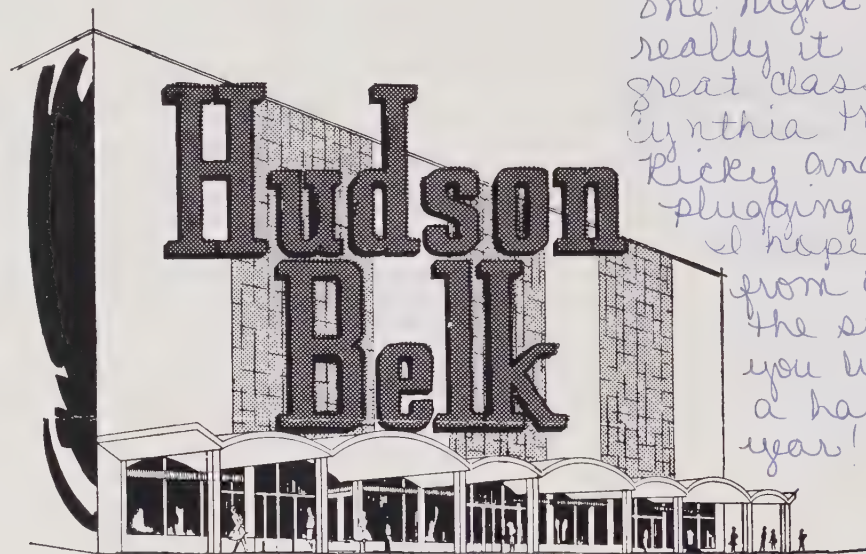 Hudson
Belk
one night
really it
great clas
Cynthia tr
Ricky and
plugging
I hope
from
the s
you
a ha
year!